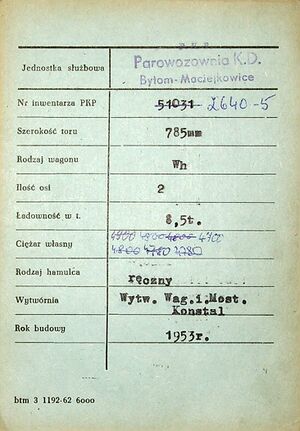 P K P
Jednostka służbowa Parowozownia K.D.
Bytom-Maciejkowice
Nr inwentarza PKP 51031 2640-5
Szerokość toru 785mm
Rodzaj wagonu Wh
Ilość osi 2
Ładowność w t. 8,5t.
4900 4700
Ciężar własny 4800 4780
Rodzaj hamulca ręczny
Wytwórnia Wytw. Wag.i.Most.
Konstal
Rok budowy 1953r.
btm 3 1192-62 6000